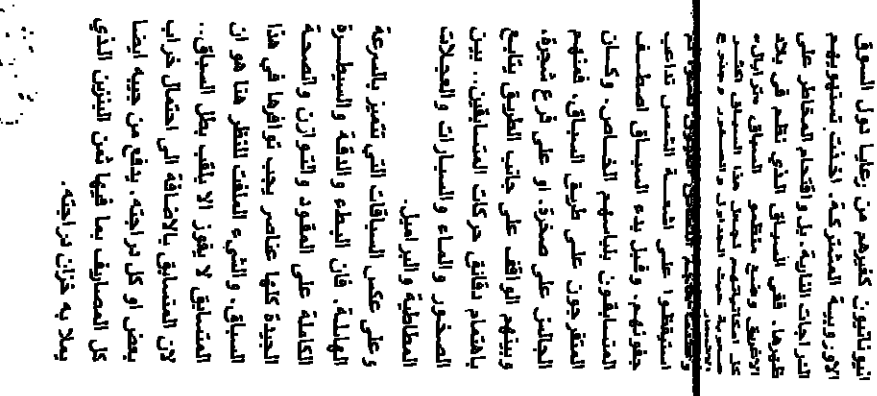 اليوناتيون كغيرهم من رعايا دول السوق
الاوروبية المشتركة، اخذت تستهويهم
الدراجات النارية، بل واقتحام المخاطر على
ظهرها. ففي السباق الذي نظم في بلاد
الاغريق وضع منظمو السباق «ترايال»
كل امكانياتهم لجعل هذا السباق اكثر
صعوبة حيث الجداول والصخور وجذوع
الاشجار
استيقظوا على اشعة الشمس تداعب
جفونهم. وقبل بدء السباق اصطف
المتسابقون بلباسهم الخاص. وكان
المتفرجون على طريق السباق، فمنهم
الجالس على صخرة، او على فرع شجرة،
وبينهم الواقف على جانب الطريق يتابع
باهتمام دقائق حركات المتسابقين.. بين
الصخور والماء والسيارات والعجلات
المطاطية والبراميل.
وعلى عكس السباقات التي تتميز بالسرعة
الهائلة، فان البطء والدقة والسيطرة
الكاملة على المقود والتوازن والصحة
الجيدة كلها عناصر يجب توافرها في هذا
السباق. والشيء الملفت للنظر هنا هو ان
المتسابق لا يفوز الا بلقب بطل السباق..
لان المتسابق بالاضافة الى احتمال خراب
بعض او كل دراجته، يدفع من جيبه ايضا
كل المصاريف بما فيها ثمن البنزين الذي
يملا به خزان دراجته.